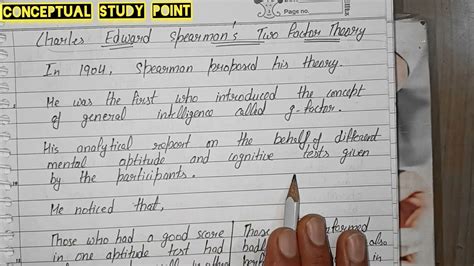 CONCEPTUAL STUDY POINT
Page no.
Charles Edward Spearman's Two Factor Theory
In 1904, Spearman proposed his theory.
He was the first who introduced the concept
of general intelligence called g-factor.
His analytical report on the behalf of different
mental aptitude and cognitive tests given
by the participants.
He noticed that,
Those who had a good score
in one aptitude test had
Those
bad
also